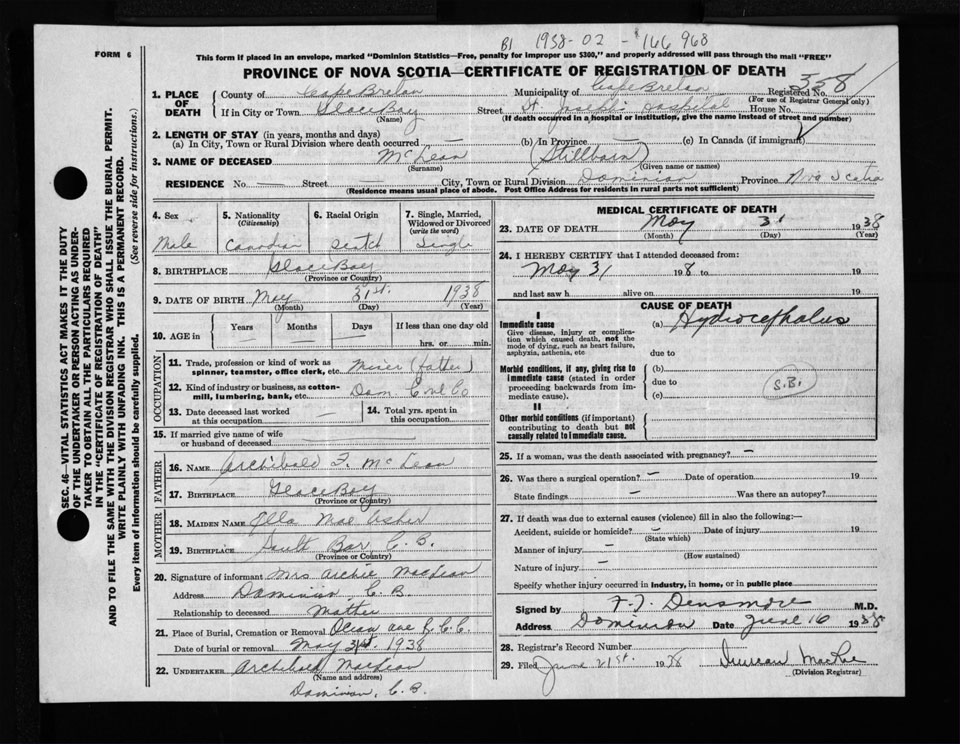 B1 1938-02-166 968
FORM 6
This form if placed in an envelope, marked "Dominion Statistics—Free, penalty for improper use $300," and properly addressed will pass through the mail "FREE"
PROVINCE OF NOVA SCOTIA—CERTIFICATE OF REGISTRATION OF DEATH
SEC. 46—VITAL STATISTICS ACT MAKES IT THE DUTY
OF THE UNDERTAKER OR PERSON ACTING AS UNDER-
TAKER TO OBTAIN ALL THE PARTICULARS REQUIRED
IN THE "CERTIFICATE OF REGISTRATION OF DEATH"
AND TO FILE THE SAME WITH THE DIVISION REGISTRAR WHO SHALL ISSUE THE BURIAL PERMIT.
WRITE PLAINLY WITH UNFADING INK. THIS IS A PERMANENT RECORD.
Every item of Information should be carefully supplied. (See reverse side for instructions.)
1. PLACE OF DEATH County of Cape Breton Municipality of Cape Breton Registered No. 358
(For use of Registrar General only)
If in City or Town Glace Bay Street St. Joseph's Hospital House No.
(Name) (If death occurred in a hospital or institution, give the name instead of street and number)
2. LENGTH OF STAY (in years, months and days)
(a) In City, Town or Rural Division where death occurred — (b) In Province — (c) In Canada (if immigrant)
3. NAME OF DECEASED McLean (Stillborn)
(Surname) (Given name or names)
RESIDENCE No. — Street City, Town or Rural Division Dominion Province Nova Scotia
(Residence means usual place of abode. Post Office Address for residents in rural parts not sufficient)
4. Sex 5. Nationality 6. Racial Origin 7. Single, Married,
(Citizenship) Widowed or Divorced
(write the word)
Male Canadian Scotch Single
8. BIRTHPLACE Glace Bay
(Province or Country)
9. DATE OF BIRTH May 31st. 1938
(Month) (Day) (Year)
10. AGE in Years Months Days If less than one day old
— — — hrs. or min.
OCCUPATION
11. Trade, profession or kind of work as
spinner, teamster, office clerk, etc. Miner (father)
12. Kind of industry or business, as cotton-
mill, lumbering, bank, etc. Dom. Coal Co
13. Date deceased last worked 14. Total yrs. spent in
at this occupation — this occupation
15. If married give name of wife
or husband of deceased
FATHER
16. NAME Archibald F. McLean
17. BIRTHPLACE Glace Bay
(Province or Country)
MOTHER
18. MAIDEN NAME Ella Mae
19. BIRTHPLACE South Bar, C. B.
(Province or Country)
20. Signature of informant Mrs Archie MacLean
Address Dominion C. B.
Relationship to deceased Mother
21. Place of Burial, Cremation or Removal Ocean ave
Date of burial or removal May 31st 1938
22. UNDERTAKER Archibald MacLean
(Name and address)
Dominion, C. B.
MEDICAL CERTIFICATE OF DEATH
23. DATE OF DEATH May 31 1938
(Month) (Day) (Year)
24. I HEREBY CERTIFY that I attended deceased from:
May 31 198 to 19
and last saw h alive on 19
CAUSE OF DEATH
I
Immediate cause (a) Hydrocephalus
Give disease, injury or complica-
tion which caused death, not the
mode of dying, such as heart failure,
asphyxia, asthenia, etc due to
Morbid conditions, if any, giving rise to (b)
immediate cause (stated in order due to
proceeding backwards from im- (c) S.B.
mediate cause).
II
Other morbid conditions (if important)
contributing to death but not
causally related to immediate cause.
25. If a woman, was the death associated with pregnancy? —
26. Was there a surgical operation? — Date of operation 19
State findings — Was there an autopsy?
27. If death was due to external causes (violence) fill in also the following:—
Accident, suicide or homicide? — Date of injury 19
(State which)
Manner of injury —
(How sustained)
Nature of injury —
Specify whether injury occurred in industry, in home, or in public place
Signed by F. J. Densmore M.D.
Address Dominion Date June 16 1938
28. Registrar's Record Number
29. Filed June 21st. 1938 Duncan MacRae
(Division Registrar)